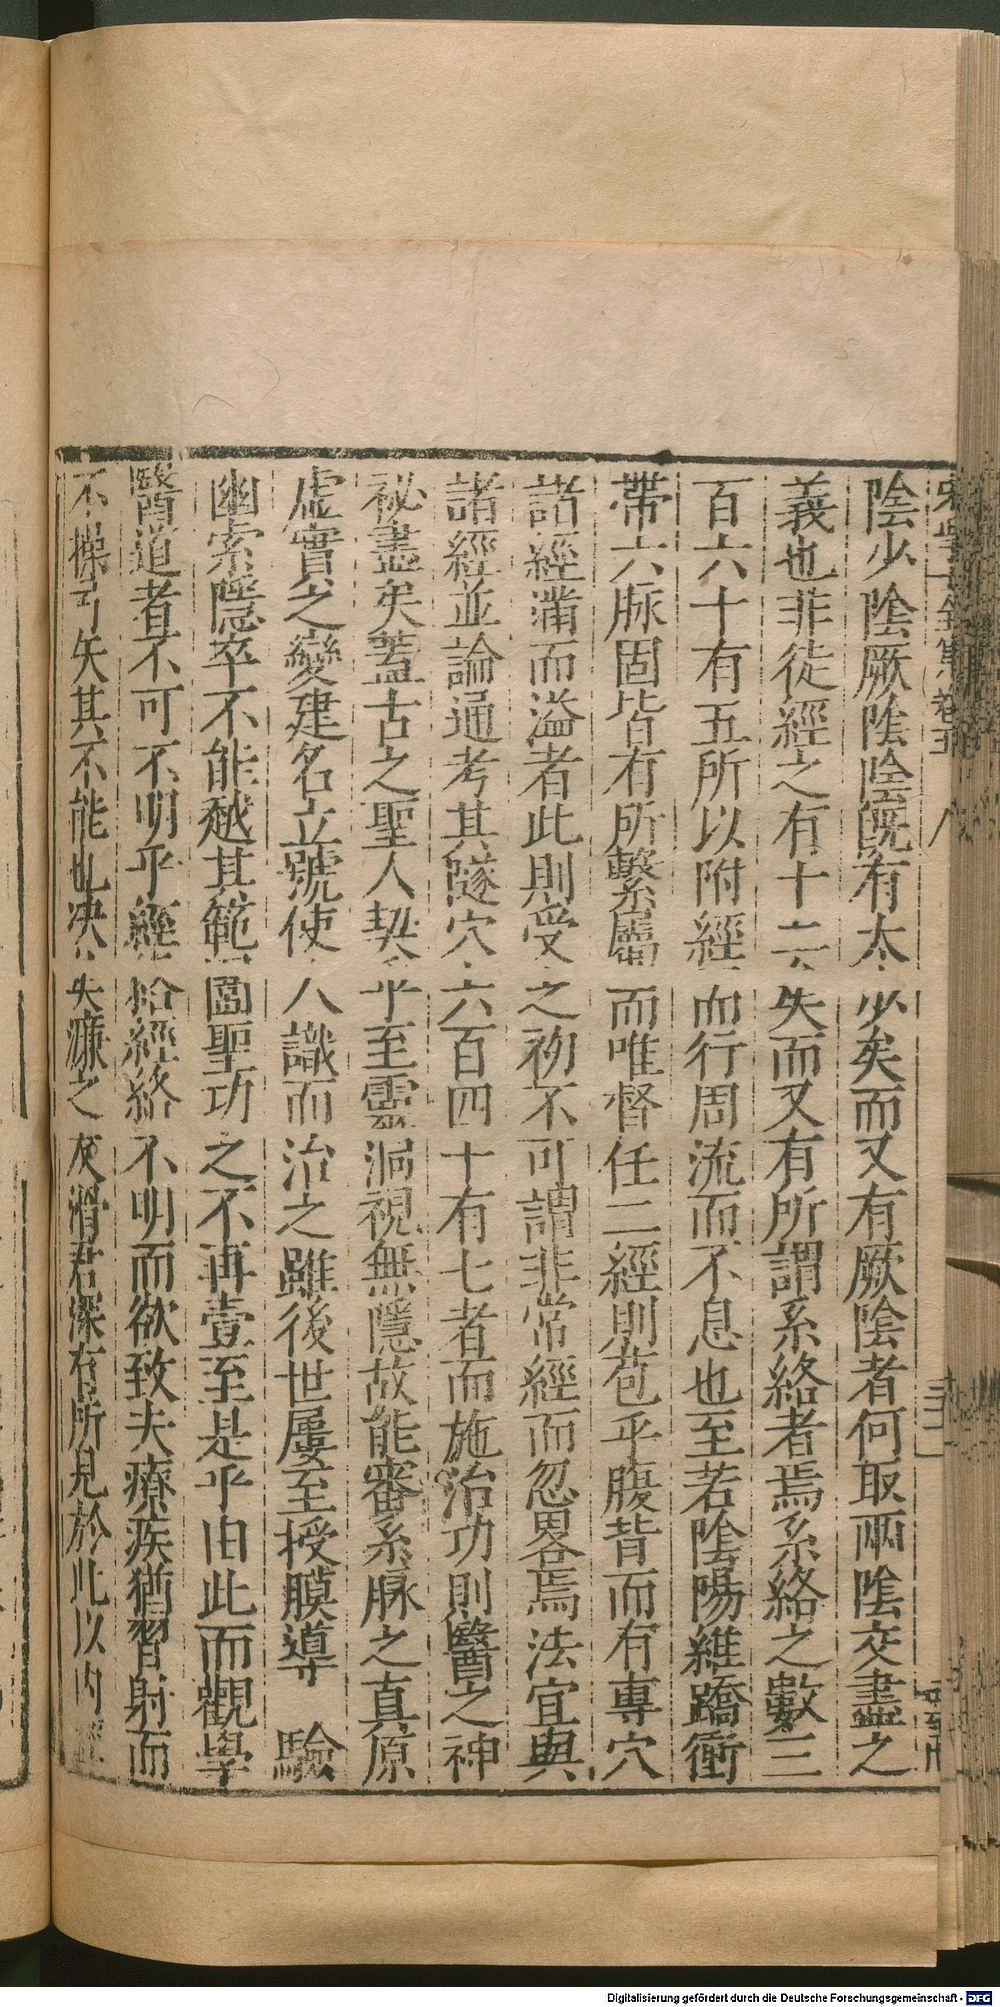 陰少陰厥陰陰既有太少矣而又有厥陰者何取兩陰交盡之
義也非徒經之有十二矣而又有所謂系絡者焉系絡之數三
百六十有五所以附經而行周流而不息也至若陰陽維蹻衝
帶六脉固皆有所繫屬而唯督任二經則苞乎腹背而有專穴
諸經滿而溢者此則受之初不可謂非常經而忽畧焉法宜與
諸經並論通考其隧穴六百四十有七者而施治功則醫之神
祕盡矣蓋古之聖人契乎至靈洞視無隱故能審系脉之真原
虛實之變建名立號使人識而治之雖後世屢至授膜導驗
幽索隱卒不能越其範圍聖功之不再壹至是乎由此而觀學
醫道者不可不明乎經絡經絡不明而欲致夫療疾猶習射而
不操弓矢其不能也决矣濂之友滑君深有所見於此以內經
Digitalisierung gefördert durch die Deutsche Forschungsgemeinschaft - DFG